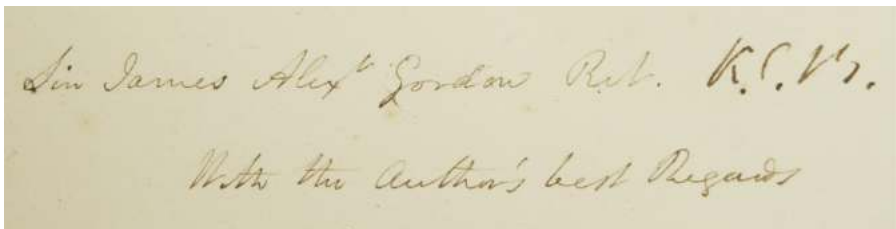 Sir James Alexr Gordon K.C.B.
With the Author's best Regards